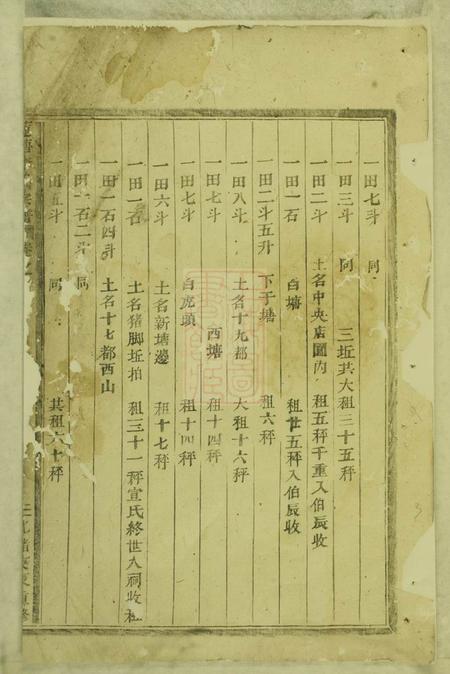 一田七斗 同
一田三斗 同 三坵共大租三十五秤
一田二斗 土名中央店園內 租五秤千重入伯辰收
一田一石 白塘 租廿五秤入伯辰收
一田二斗五升 下于塘 租六秤
一田八斗 土名十九都 大租十六秤
一田七斗 西塘 租十四秤
一田七斗 白虎頭 租十四秤
一田六斗 土名新塘邊 租十七秤
一田一石 土名猪脚坵拍 租三十一秤宣氏終世入祠收租
一田一石四斗 土名十七都西山
一田一石二斗 同
一田五斗 同 共租六十秤